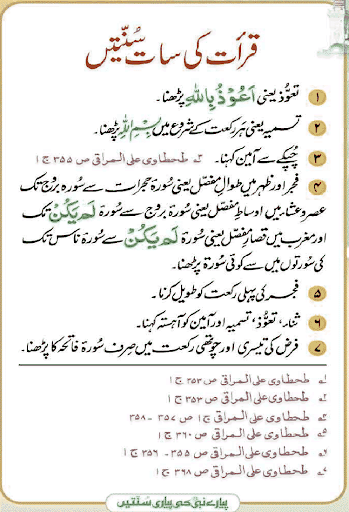 قرأت کی سات سُنّتیں
۱ تعوّذ یعنی اَعُوْذُ بِاللّٰهِ پڑھنا۔
۲ تسمیہ یعنی ہر رکعت کے شروع میں بِسْمِ اللّٰهِ پڑھنا۔
۳ چُپکے سے آمین کہنا۔ ۳ طحطاوی علی المراقی ص ۳۵۵ ج ۱
۴ فجر اور ظہر میں طوالِ مفصّل یعنی سُورۃ حجرات سے سُورۃ بروج تک
عصر و عشاء میں اوساطِ مفصّل یعنی سُورۃ بروج سے سُورۃ لَمْ یَکُنْ تک
اور مغرب میں قصارِ مفصّل یعنی سُورۃ لَمْ یَکُنْ سے سُورۃ ناس تک
کی سُورتوں میں سے کوئی سُورۃ پڑھنا۔
۵ فجر کی پہلی رکعت کو طویل کرنا۔
۶ ثناء، تعوُّذ، تسمیہ اور آمین کو آہستہ کہنا۔
۷ فرض کی تیسری اور چوتھی رکعت میں صِرف سُورۃ فاتحہ کا پڑھنا۔
۱ طحطاوی علی المراقی ص ۳۵۳ ج ۱
۲ طحطاوی علی المراقی ص ۳۵۳ ج ۱
۴ طحطاوی علی المراقی ج ۱ ص ۳۵۷ - ۳۵۸
۵ طحطاوی علی المراقی ص ۳۶۰ ج ۱
۶ طحطاوی علی المراقی ص ۳۵۵ - ۳۵۶ ج ۱
۷ طحطاوی علی المراقی ص ۳۶۸ ج ۱
پیارے نبی کی پیاری سنتیں